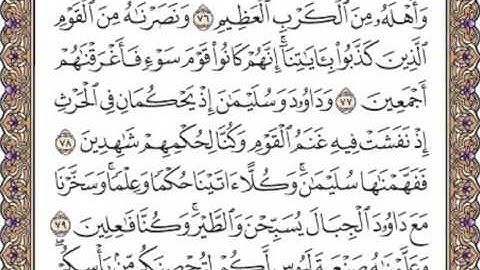 وَأَهْلَهُۥ مِنَ ٱلْكَرْبِ ٱلْعَظِيمِ ۝٧٦ وَنَصَرْنَٰهُ مِنَ ٱلْقَوْمِ
ٱلَّذِينَ كَذَّبُوا۟ بِـَٔايَٰتِنَآ ۚ إِنَّهُمْ كَانُوا۟ قَوْمَ سَوْءٍ فَأَغْرَقْنَٰهُمْ
أَجْمَعِينَ ۝٧٧ وَدَاوُۥدَ وَسُلَيْمَٰنَ إِذْ يَحْكُمَانِ فِى ٱلْحَرْثِ
إِذْ نَفَشَتْ فِيهِ غَنَمُ ٱلْقَوْمِ وَكُنَّا لِحُكْمِهِمْ شَٰهِدِينَ ۝٧٨
فَفَهَّمْنَٰهَا سُلَيْمَٰنَ ۚ وَكُلًّا ءَاتَيْنَا حُكْمًا وَعِلْمًا ۚ وَسَخَّرْنَا
مَعَ دَاوُۥدَ ٱلْجِبَالَ يُسَبِّحْنَ وَٱلطَّيْرَ ۚ وَكُنَّا فَٰعِلِينَ ۝٧٩
وَعَلَّمْنَٰهُ صَنْعَةَ لَبُوسٍ لَّكُمْ لِتُحْصِنَكُم مِّنۢ بَأْسِكُمْ ۖ